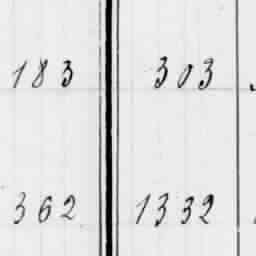 183 303
362 1332